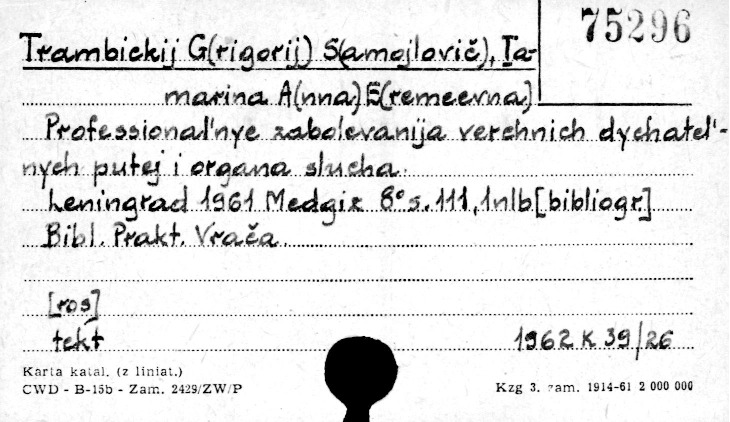 75296
Trambickij G(rigorij) S(amojlovič), Ta-
marina A(nna) E(remeevna)
Professional'nye zabolevanija verchnich dychatel'-
nych putej i organa slucha
Leningrad 1961 Medgiz 8° s. 111, 1nlb [bibliogr]
Bibl. Prakt. Vrača
[ros]
tekt
1962 K 39/26
Karta katal. (z liniat.)
CWD - B-15b - Zam. 2429/ZW/P
Kzg 3. zam. 1914-61 2 000 000